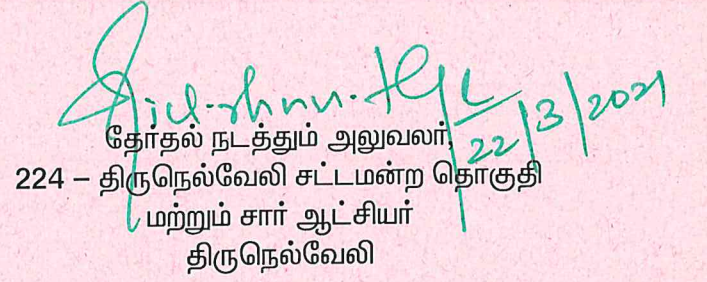 22/3/2021
தேர்தல் நடத்தும் அலுவலர்,
224 – திருநெல்வேலி சட்டமன்ற தொகுதி
மற்றும் சார் ஆட்சியர்
திருநெல்வேலி